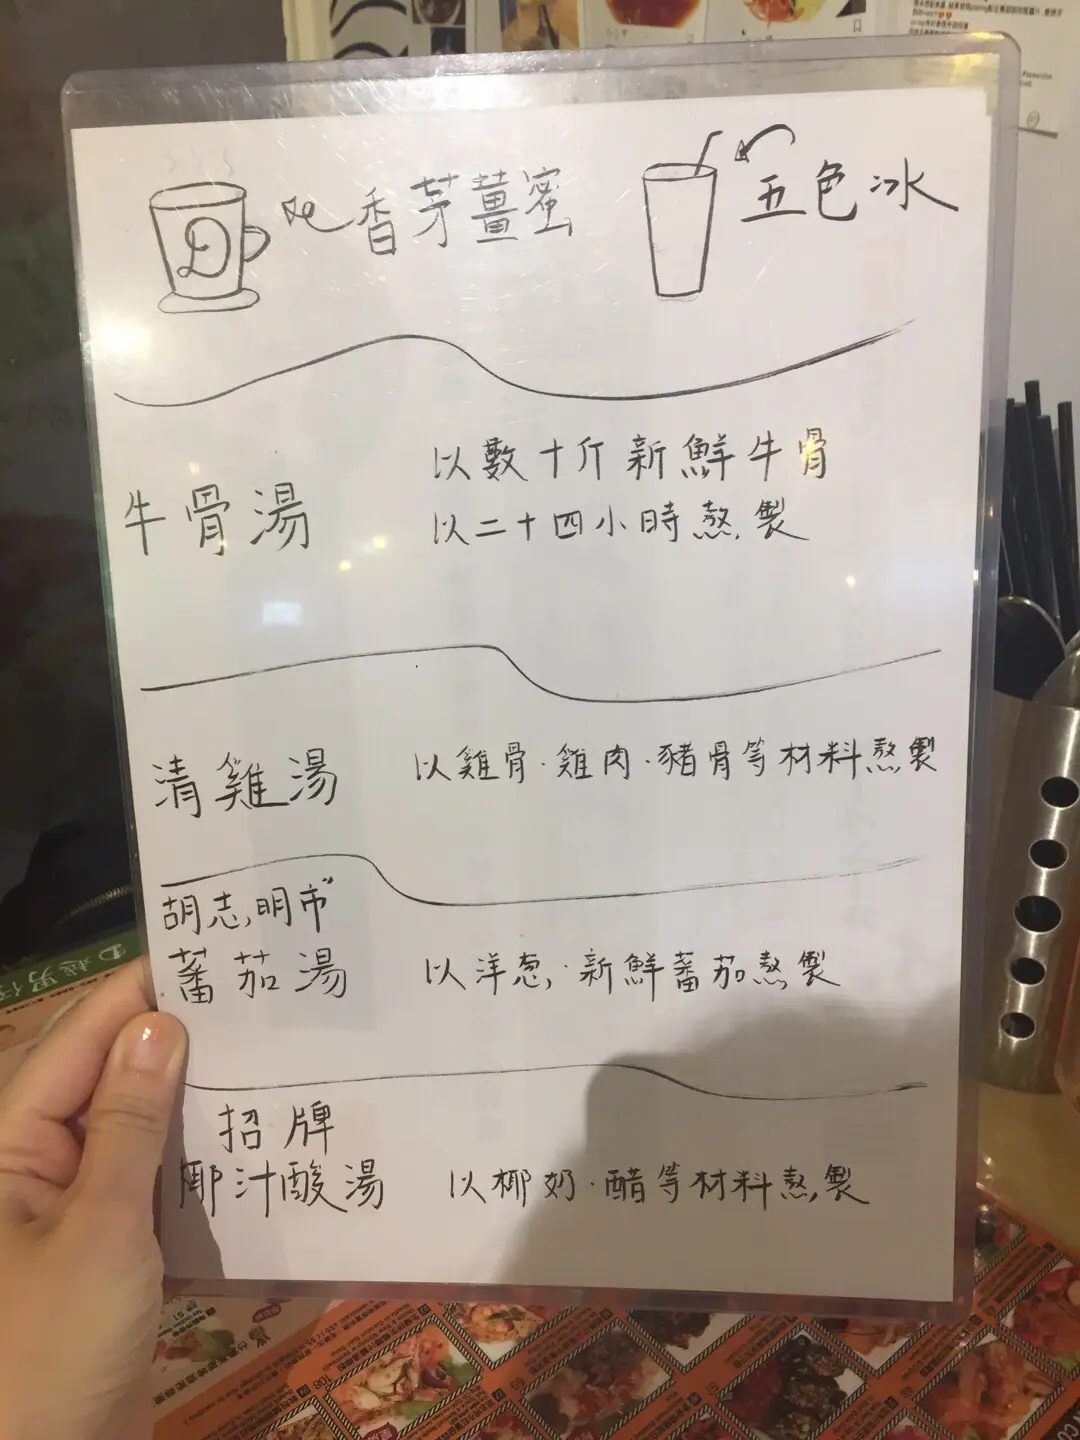 D
香茅薑蜜
五色冰
牛骨湯
以數十斤新鮮牛骨
以二十四小時熬製
清雞湯
以雞骨.雞肉.豬骨等材料熬製
胡志明市
蕃茄湯
以洋葱.新鮮蕃茄熬製
招牌
椰汁酸湯
以椰奶.醋等材料熬製